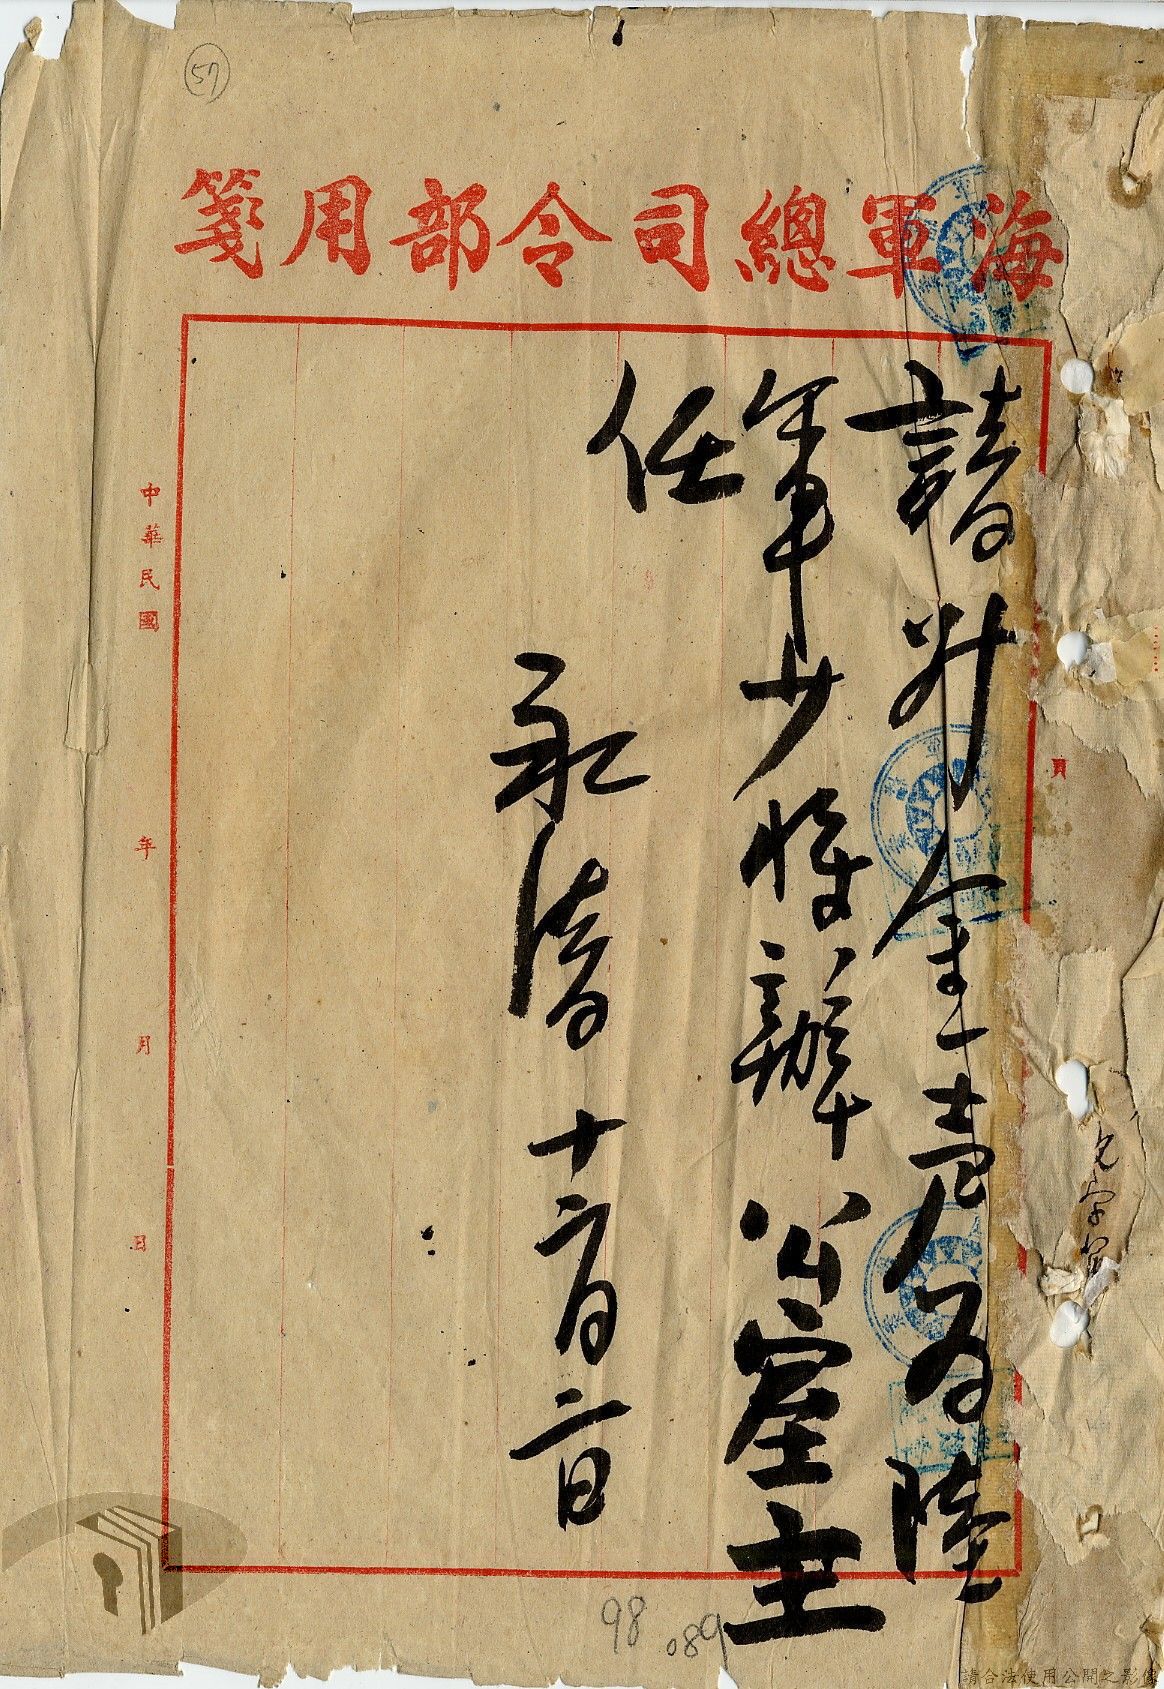 57
海軍總司令部用箋
請升金声為陸
軍少將辦公室主
任
永清 十二月二日
中華民國 年 月 日
頁
98
089
請合法使用公開之影像